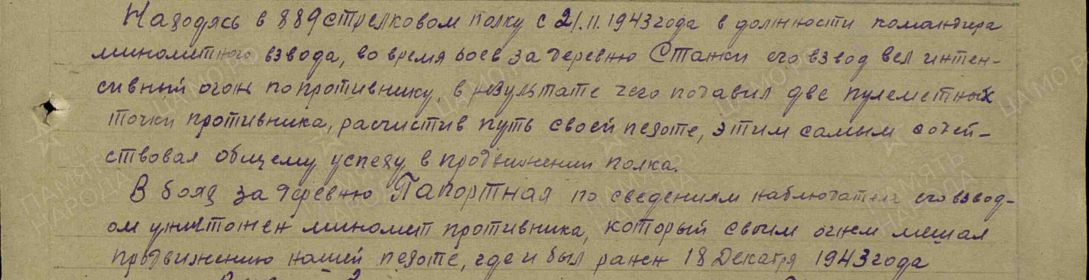 Находясь в 889 стрелковом полку с 21.11.1943 года в должности командира
минометного взвода, во время боев за деревню Станки его взвод вел интен-
сивный огонь по противнику, в результате чего подавил две пулеметных
точки противника, расчистив путь своей пехоте, этим самым содей-
ствовал общему успеху в продвижении полка.
В боях за деревню Папортная по сведениям наблюдателя его взвод-
ом уничтожен миномет противника, который своим огнем мешал
продвижению нашей пехоте, где и был ранен 18 Декабря 1943 года